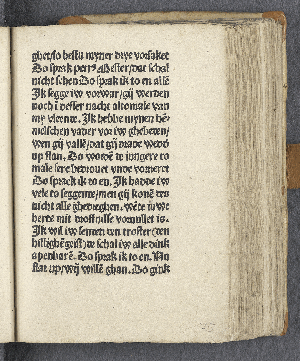 ghet/so hestu myner drye vorsaket
Do sprak peter Mester/dat schal
nicht schen Do sprak ik to en allē
Ik segge iw vorwar/gij werden
noch ī desser nacht altomale van
my vleen. Ik hebbe mynen hē-
melschen vader vor iw ghebeden/
wen gij vallē/dat gij drade wedd
up stan. Do wordē de iungere to
male sere bedrouet vnde vorueret
Do sprack ik to en. Ik hadde iw
vele to seggene/men gij konē des
nicht alle ghedreghen. wēte iuwe
herte mit drofnisse voruullet is.
Ik wil iw senden den troster/den
hillighē geist/de schal iw alle dink
apenbarē. Do sprak ik to en. Nu
stat up/wij willē ghan. Do gink